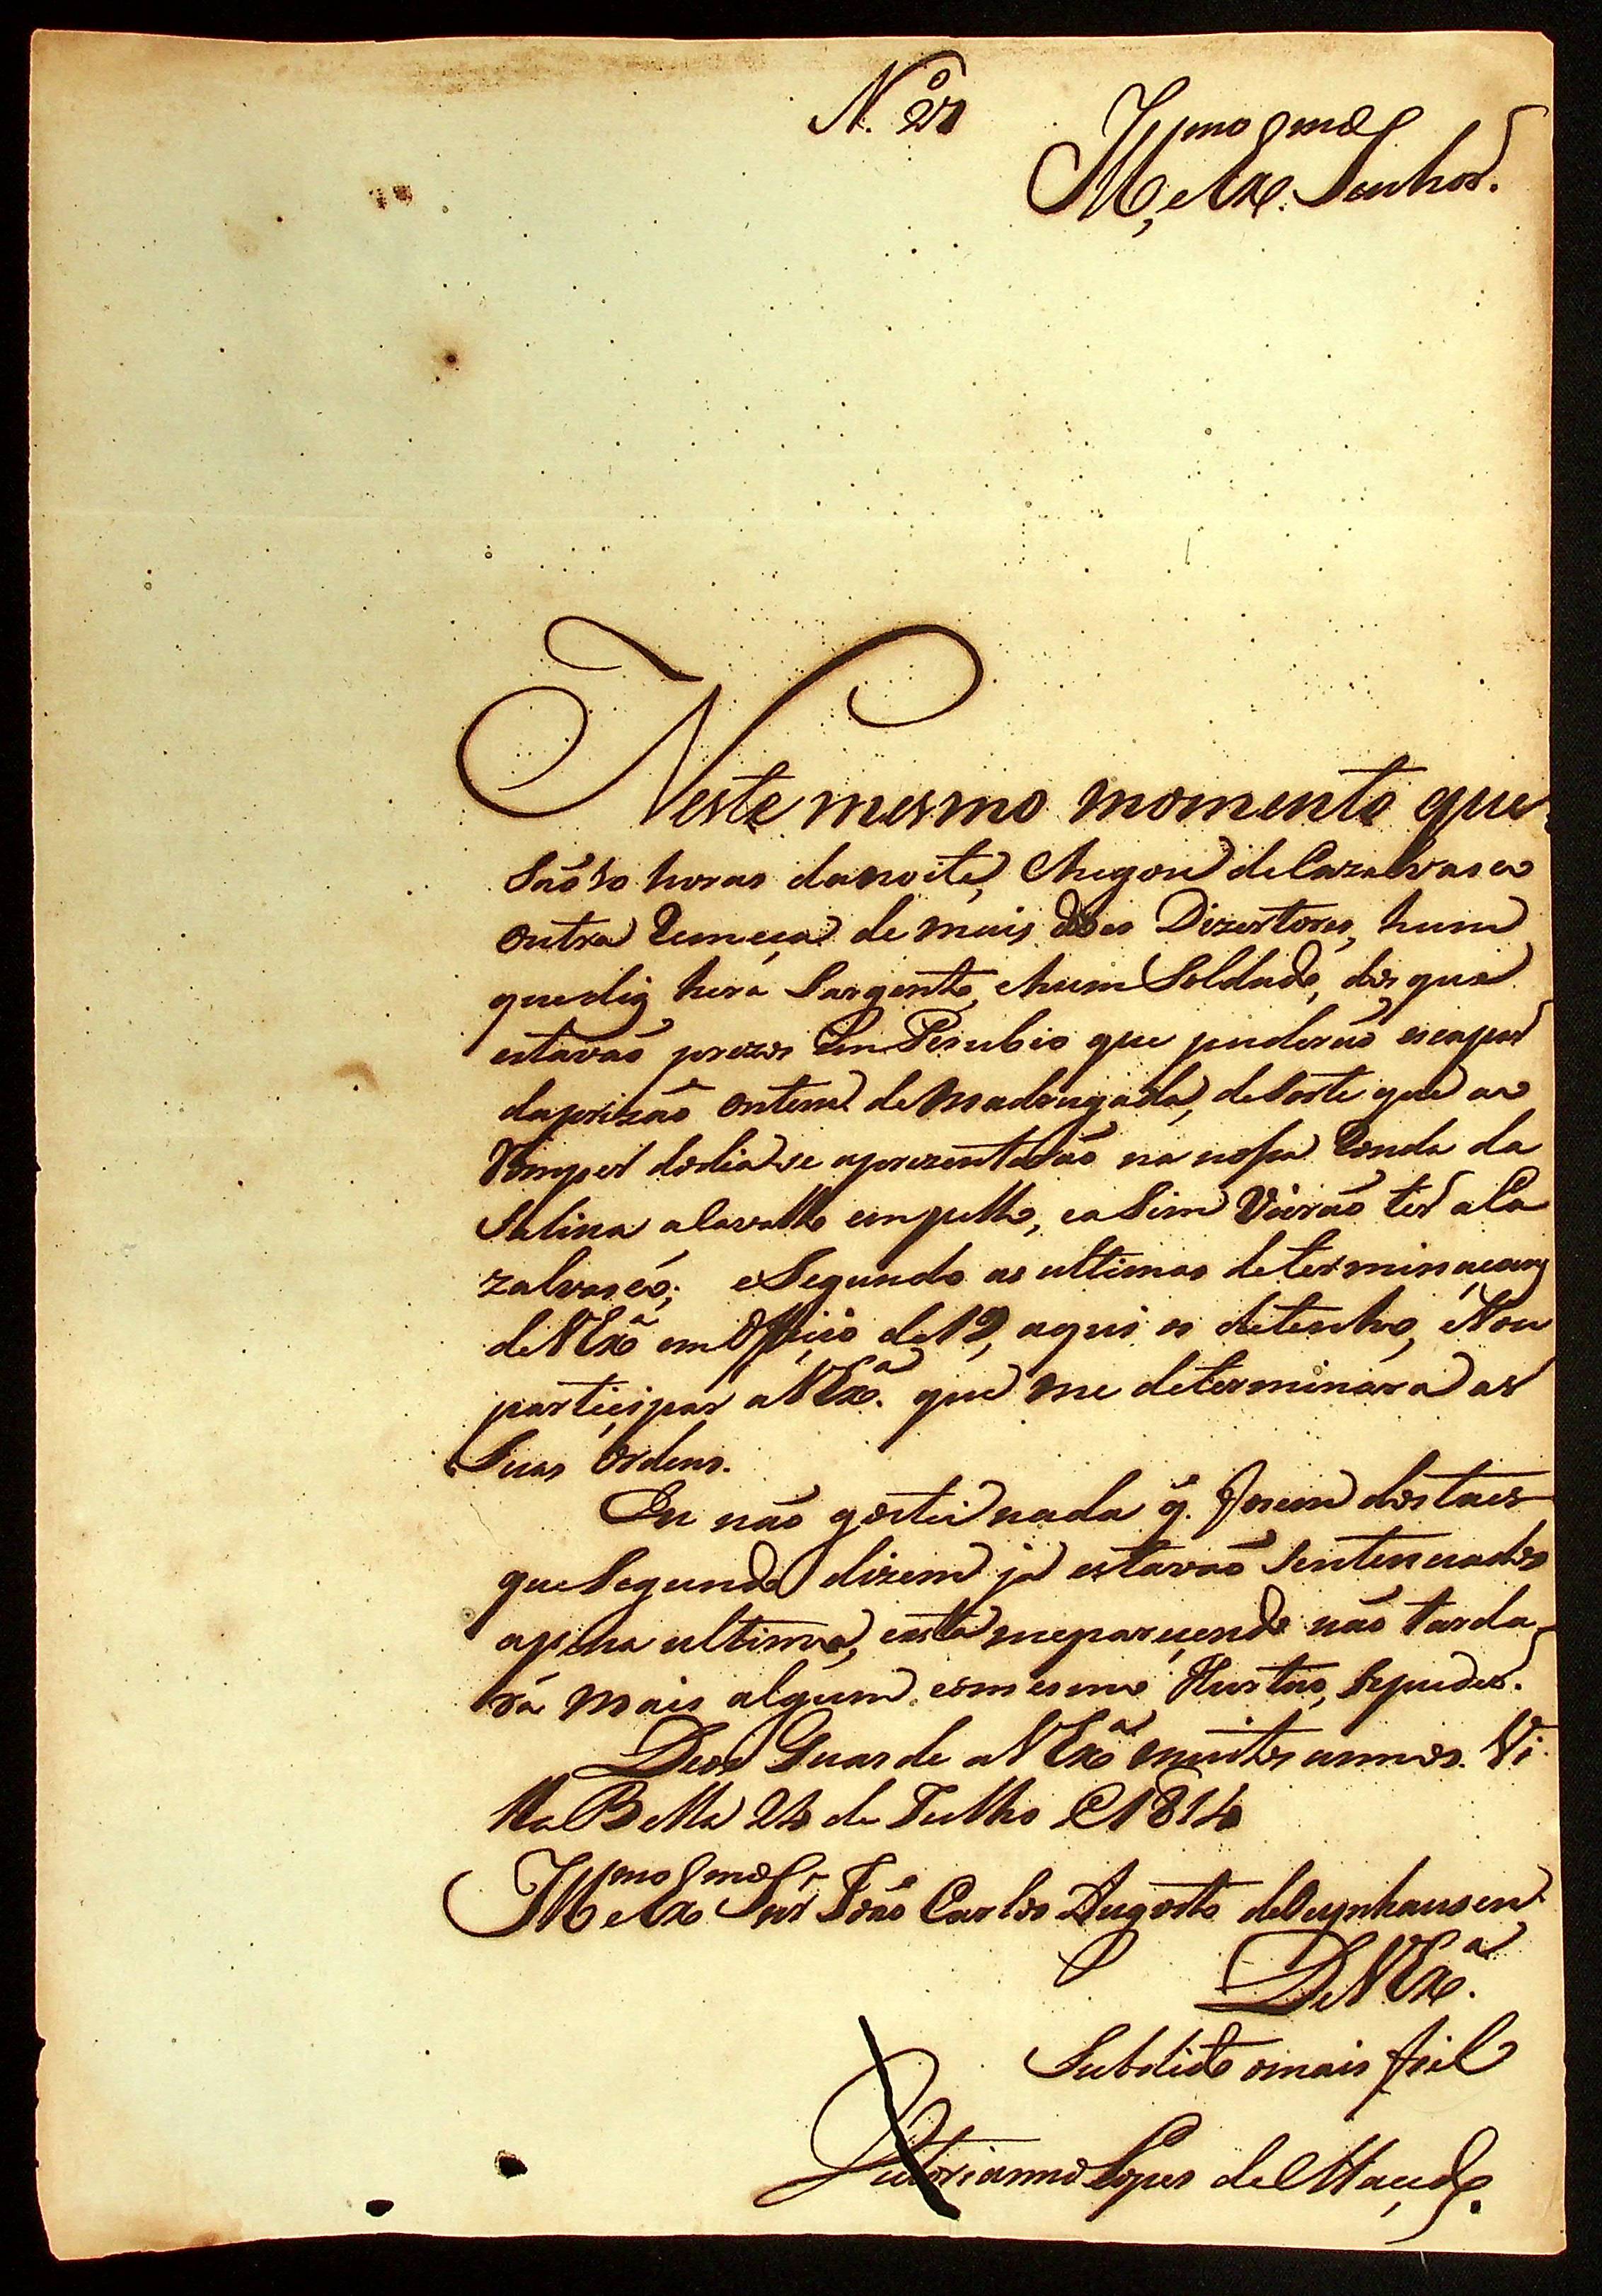 N.º 27
Ill.mo e Ex.mo Senhor.
Neste mesmo momento que
são 10 horas da noite, chegou de Cazalvasco
outra remeça de mais dois Dizertores, hum
que diz hera Sargento, e hum Soldado, dos que
estavão prezos em que puderão escapar
da prizão ontem de madrugada, de sorte que ao
romper do dia se aprezentarão na nossa Ronda da
Salina a Cavallo em pello, e asim vierão ter a Ca
zalvasco; e Segundo as ultimas determinaçoens
de V Exª em Officio de 19, aqui os detenho, e vou
participar a V Exª. que me determinará as
Suas Ordens.
Eu não gostei nada q. fosem dos taes
que Segundo dizem já estavão Sentenciados
a pena ultima, e está me pareçendo não tarda
rá mais algum com esmo furtas, se puder.
Deos Guarde a V Exª muitos annos. Vi
lla Bella 24 de Julho de 1814
Ill.mo e Ex.mo Snr João Carlos Augosto de Oeynhausen
De V Exª.
Subdito o mais fiel
Victorianno Lopes de Macedo.